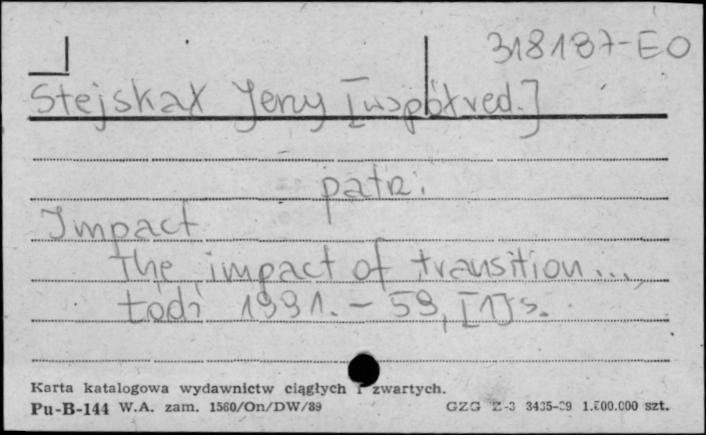 318187-EO
Stejskał Jerzy [współred.]
patrz.
Impact
The impact of transition...,
Łódź 1991. - 59, [1] s.
Karta katalogowa wydawnictw ciągłych i zwartych.
Pu-B-144 W.A. zam. 1560/On/DW/89 GZG Z-3 3435-89 1.500.000 szt.